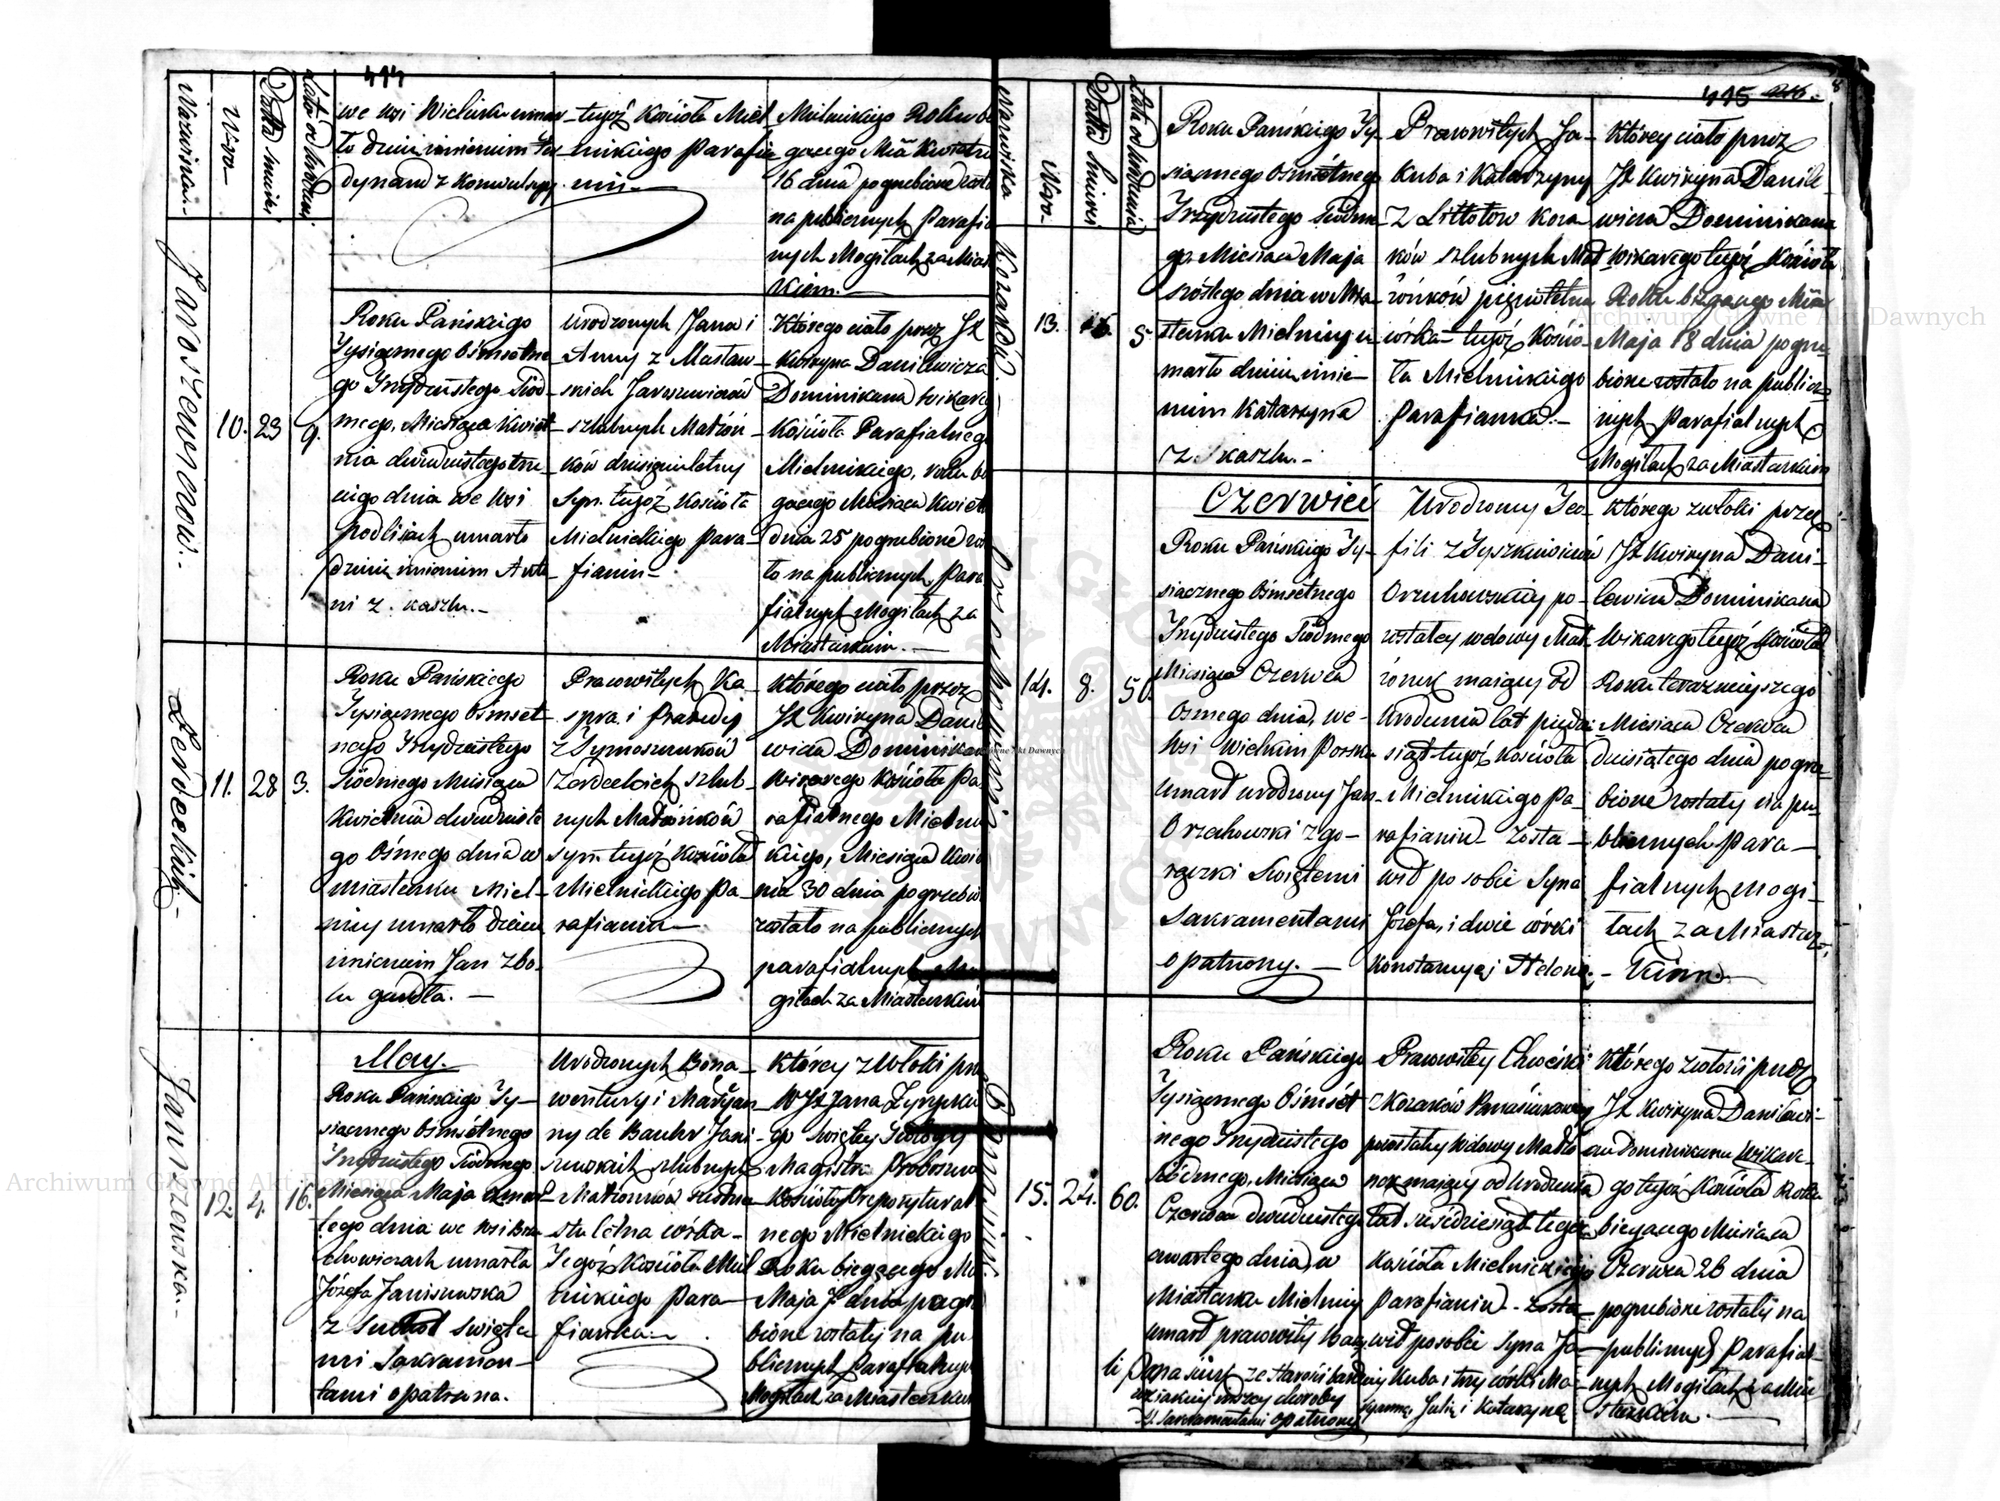 414
Nazwiska
Nro
Datta śmierci
Lata od urodzenia
we wsi
umar-
ło dziecie imieniem Fer-
dynand z konwulsyi.
tegoż Kościoła Miel-
nickiego Parafia-
nin
Mielnickiego Roku be-
gącego Mca Kwietnia
16 dnia pogrzebione zosta
na publicznych Parafial
nych Mogiłach za Mias
kiem.
Jaroszewiczow.
10. 23 9.
Roku Pańskiego
Tysiącznego Ośmsetne
go Trzydziestego Siód-
mego, Miesiąca Kwiet-
nia dwudziestego trze-
ciego dnia we wsi
Podlisiach umarło
dziecie imieniem Anto-
ni z kaszlu.
Urodzonych Jana i
Anny z Masław-
skich Jaroszewiczów
szlubnych Małżon-
ków dziesięcioletny
Syn tegoż Kościoła
Mielnickiego Para-
fianin
Którego ciało przez JX
Kwiryna Danilewicza
Dominikana Wikarego
Kościoła Parafialnego
Mielnickiego, roku be
gącego Miesiąca Kwiet
dnia 25 pogrzebione zos
ło na publicznych Para
fialnych Mogiłach za
Miasteczkiem.
Zerdeckich
11. 28 3.
Roku Pańskiego
Tysiącznego Ośmset-
nego Trzydziestego
Siódmego Miesiąca
Kwietnia dwudzieste
go Ósmego dnia w
miasteczku Miel-
nicy umarło dziecie
imieniem Jan z bo-
lu gardła.
Pracowitych Ka-
spra i
z Symoszenków
Zerdeckich szlub-
nych Małżonków
syn tegoż Kościoła
Mielnickiego Pa-
rafianin
Którego ciało przez
JX Kwiryna Danile
wicza Dominikana
Wikarego Kościoła Pa-
rafialnego Mielnic
kiego, Miesiąca Kwie
nia 30 dnia pogrzebio
zostało na publicznych
parafialnych Mo
giłach za Miasteczkiem
Janiszewska.
12. 4. 16.
May.
Roku Pańskiego Ty-
siącznego Ośmsetnego
Trzydziestego Siódmego
Miesiąca Maja czwar-
tego dnia we wsi
umarła
Józefa Janiszewska
z suchot święte
mi Sakramen-
tami opatrzona.
Urodzonych Bona-
wentury i Maryan-
ny de Jani-
szewskich szlubnych
Małżonków szesna-
stoletna córka
Tegoż Kościoła Miel
nickiego Para-
fianka
Którey zwłoki prz
WJX Jana
go Świętey Teologyi
Magistra Proboszcza
Kościoła Prepozytural
nego Mielnickiego
Roku biegącego Mca
Maja 7 dnia pogrze
bione zostały na pu
blicznych Parafialnych
Mogiłach za Miasteczkiem
415
8
Nazwiska
Nro.
Datta śmierci
Lata od urodzenia
Kozaków.
13. 16. 5
Roku Pańskiego Ty-
siącznego Ośmsetnego
Trzydziestego Siódme
go Miesiąca Maja
szóstego dnia w Mia-
steczku Mielnicy u-
marło dziecie imie-
niem Katarzyna
z kaszlu.
Pracowitych Ja-
kuba i Katarzyny
z Koza-
ków szlubnych Mał-
żonków pięcioletna
córka tegoż Kościo-
ła Mielnickiego
Parafianka.
Którey ciało przez
JX Kwiryna Danile-
wicza Dominikana
Wikarego tegoż Kościoła
Roku bzgącego Mca
Maja 18 dnia pogrze-
bione zostało na publicz-
nych Parafialnych
Mogiłach za Miasteczkiem
Orzechowski
14. 8. 50.
Czerwiec
Roku Pańskiego Ty-
siącznego Ośmsetnego
Trzydziestego Siódmego
Miesiąca Czerwca
Osmego dnia, we-
wsi
Umarł urodzony Jan
Orzechowski z go-
rączki Świętemi
Sakramentami
opatrzony.
Urodzoney Teo-
fili z Tyszkiewiczów
Orzechowskiey po-
zostałey wdowy Mał-
żonek maiący od
Urodzenia lat pięćdzie
siąt tegoż Kościoła
Mielnickiego Pa-
rafianin Zosta-
wił po sobie Syna
Józefa, i dwie córki
Którego zwłoki przez
JX Kwiryna Dani-
lewicza Dominikana
Wikarego tegoż Kościoła
Roku terazniejszego
Miesiąca Czerwca
dziesiątego dnia pogrze-
bione zostały na pu-
blicznych Para-
fialnych Mogi-
łach za Miastecz-
kiem.
15. 24. 60.
Roku Pańskiego
Tysiącznego Ośmset
nego Trzydziestego
Siódmego, Miesiąca
Czerwca dwudziestego
czwartego dnia, w
Miasteczku Mielnicy
umarł pracowity
ze starości
choroby
Sakramentami opatrzony
Pracowitey
z Kozaków
pozostałey Wdowy Małżo
nek maiący od Urodzenia
lat sześćdziesiąt tegoż
Kościoła Mielnickiego
Parafianin Zosta-
wił po sobie Syna Ja-
kuba i trzy córki Ma-
Julię i Katarzynę
Którego zwłoki przez
JX Kwiryna Danilewi-
cza Dominikana Wikare-
go tegoż Kościoła Roku
biegącego Miesiąca
Czerwca 26 dnia
pogrzebione zostały na
publicznych Parafial-
nych Mogiłach za Mia-
steczkiem.
Archiwum Główne Akt Dawnych
Archiwum Główne Akt Dawnych